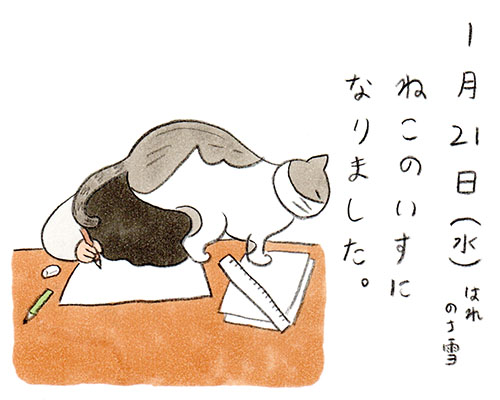 1月21日(水)はれ
のち雪
ねこのいすに
なりました。